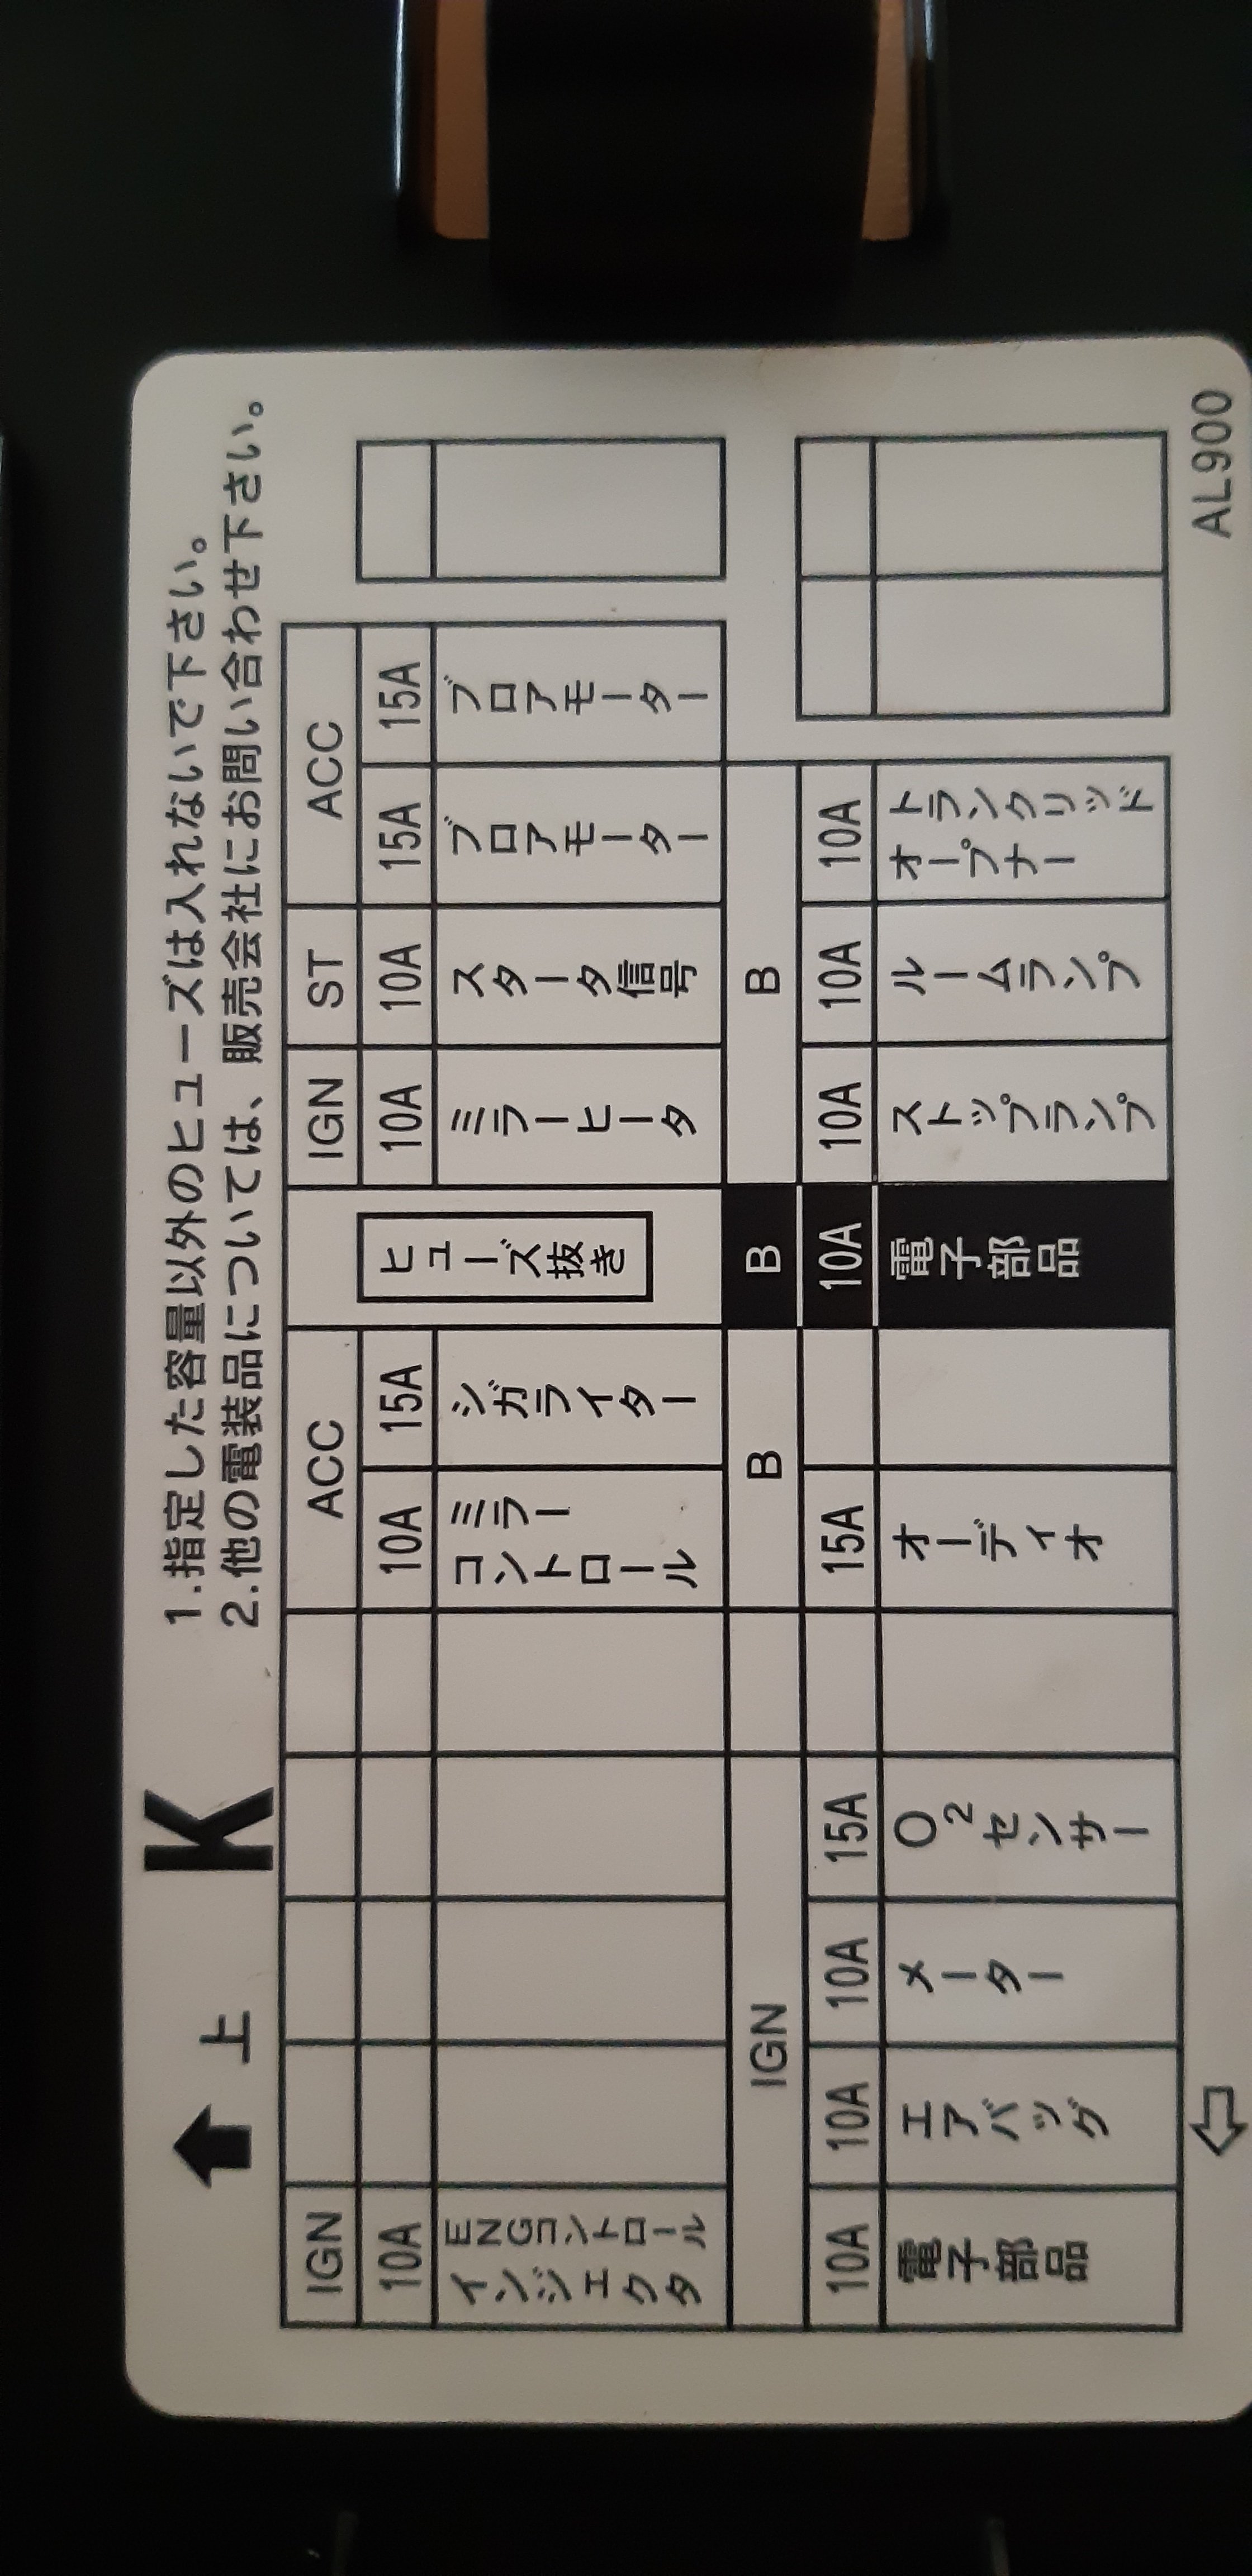 上 K
1.指定した容量以外のヒューズは入れないで下さい。
2.他の電装品については、販売会社にお問い合わせ下さい。
IGN ACC IGN ST ACC
10A 10A 15A 10A 10A 15A 15A
ENGコントロール インジェクタ
ミラー コントロール
シガライター
ヒューズ抜き
ミラーヒータ
スタータ信号
ブロアモーター
ブロアモーター
IGN B B B
10A 10A 10A 15A 15A 10A 10A 10A 10A
電子部品
エアバッグ
メーター
O2センサー
オーディオ
電子部品
ストップランプ
ルームランプ
トランクリッド オープナー
AL900